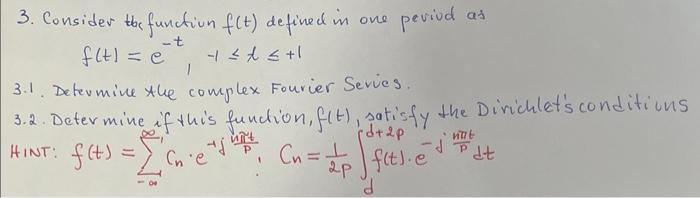 3. Consider the function f(t) defined in one period as
f(t) = e^{-t}, -1 ≤ t ≤ +1
3.1. Determine the complex Fourier Series.
3.2. Determine if this function, f(t), satisfy the Dirichlet's conditions
HINT: f(t) = \sum_{-∞}^{∞} C_n · e^{+j \frac{nπt}{p}}, C_n = \frac{1}{2p} \int_{d}^{d+2p} f(t) · e^{-j \frac{nπt}{p}} dt